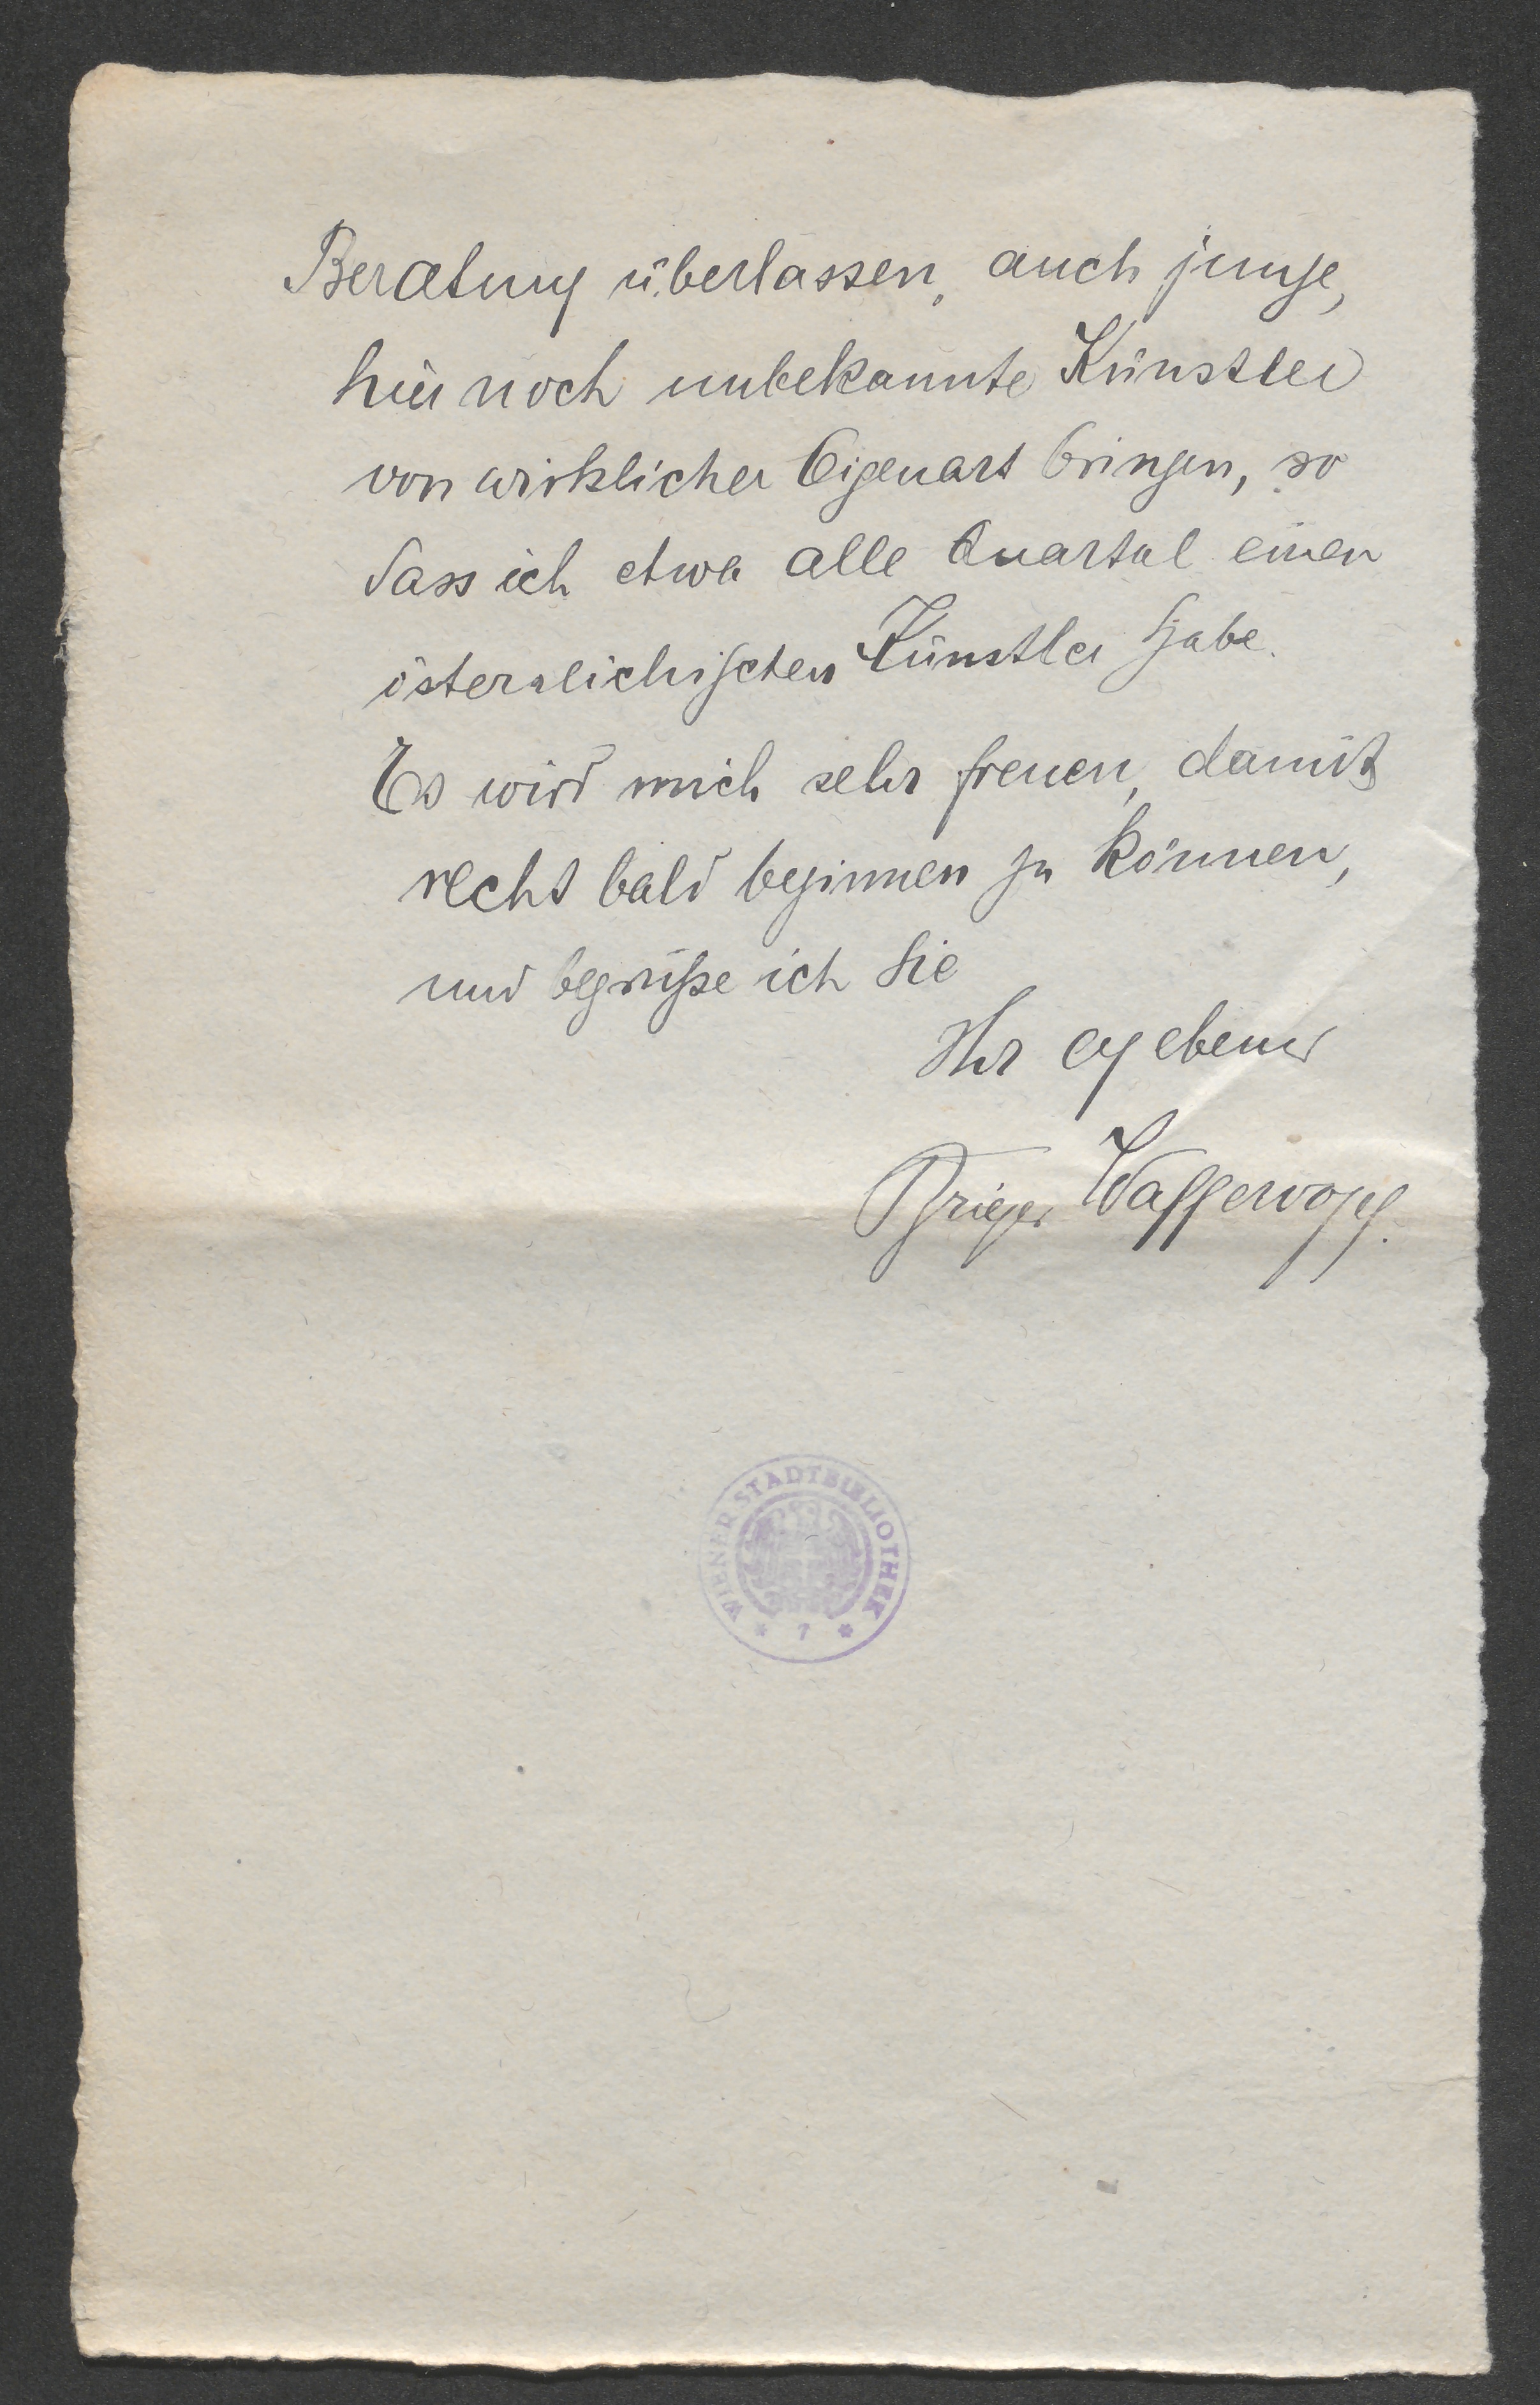 Beratung überlassen, auch junge,
hier noch unbekannte Künstler
von wirklicher Eigenart bringen, so
dass ich etwa alle Quartal einen
österreichischen Künstler habe.
Es wird mich sehr freuen, damit
recht bald beginnen zu können,
und begrüße ich Sie
Ihr ergebener
Brieger Wasservogel.
WIENER STADTBIBLIOTHEK
* 7 *